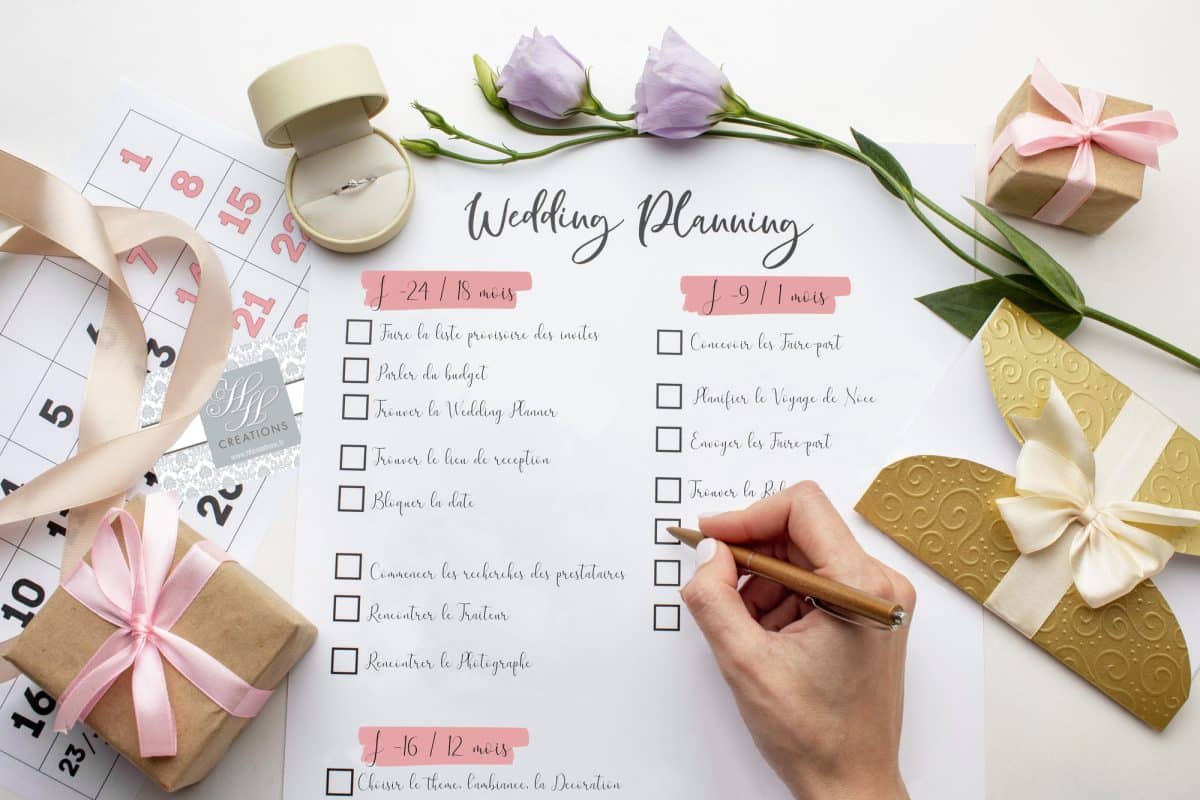 Wedding Planning
J -24 / 18 mois
Faire la liste provisoire des invites
Parler du budget
Trouver la Wedding Planner
Trouver le lieu de reception
Bloquer la date
Commencer les recherches des prestataires
Rencontrer le Traiteur
Rencontrer le Photographe
J -16 / 12 mois
Choisir le theme, l'ambiance, la Decoration
J -9 / 1 mois
Concevoir les Faire-part
Planifier le Voyage de Noce
Envoyer les Faire-part
Trouver la
1 8 15 22
7 21
6
5
20
10
16
23/
HH
CREATIONS